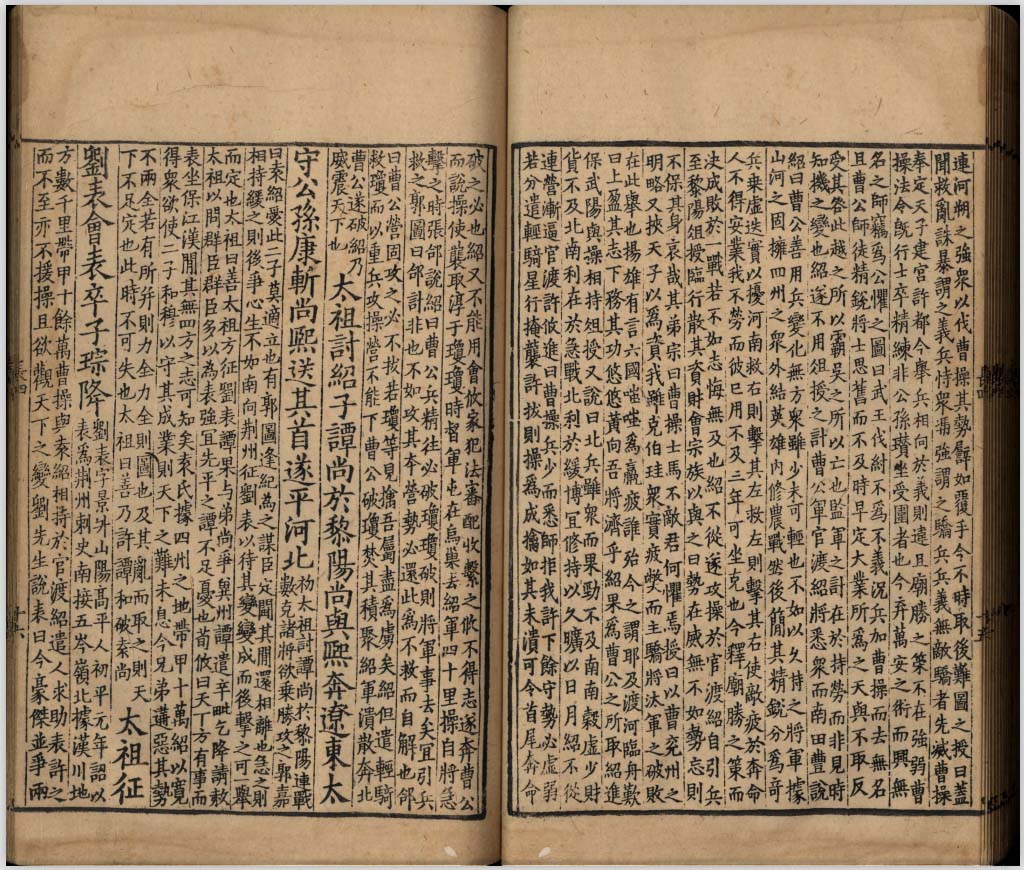 連河朔之強衆以伐曹操其勢譬如覆手今不時取後難圖之授曰蓋
聞救亂誅暴謂之義兵恃衆馮強謂之驕兵兵義無敵驕者先滅曹操
奉定天子建宮許都今舉兵相向於義則違且廟勝之策不在強弱曹
操法令旣行士卒精練非公孫瓚坐受圍者也今弃萬安之術而興無
名之師竊爲公懼之圖曰武王伐紂不爲不義況兵加曹操而去無名
且曹公師徒精銳將士思奮而不及時早定大業所爲天與不取反
受其咎此越之所以霸吳之所以亡也監軍之計在於持勞而非見時
知機之變也紹遂不用俎授之計曹公軍官渡紹將悉衆而南田豐說
紹曰曹公善用兵變化無方衆雖少未可輕也不如以久持之將軍據
山河之固擁四州之衆外結英雄內修農戰然後簡其精銳分爲奇
兵乘虛迭實以擾河南救右則擊其左救左則擊其右使敵疲於奔命
人不得安業我不勞而彼已用不及三年可坐克也今釋廟勝之策而
决成敗於一戰若不如志悔無及也紹不從遂攻操於官渡紹自引兵
至黎陽俎授臨行散其資財會宗族以與之曰勢在威無不如勢忘則
不保其身哀哉其弟宗曰曹操士馬不敵君何懼焉授曰以曹兖州之
明略又挾天子以爲資我雖克伯珪衆實疲弊而主驕將汰軍之破敗
在此舉也揚雄有言六國嗤嗤爲嬴疲諸殆今之謂耶及渡河臨舟歎
曰上盈其志下務其功悠悠黃向吾將濟乎紹果爲曹公之所敗紹進
保武陽與操相持俎授又說曰北兵雖衆而果勁不及南南穀虛少財
貨不及北南利在於急戰北利於緩博宜修持以久曠以日月紹不從
連營漸逼官渡許攸進曰曹操兵少而悉師拒我許下餘守勢必虛弱
若分遣輕騎星行掩襲許拔則操爲成擒如其未潰可令首尾奔命
破之必也紹又不能用會攸家犯法審配收繫之攸不得志遂奔曹公
而說操使襲取淳于瓊瓊時督軍屯在烏巢去紹軍四十里操自將急
擊之時張郃說紹曰曹公兵精往必破瓊瓊破則將軍事去矣宜引兵
救之郭圖曰郃計非也不如攻其本營勢必還此爲不救而自解也郃
曰曹公營固攻之必不拔若瓊等見擒吾屬盡爲虜矣紹但遣輕騎
救瓊而以重兵攻操營不能下曹公破瓊焚其積聚紹軍潰散
遂破紹乃
威震天下也
太祖討紹子譚尚於黎陽尚與熙奔遼東太
守公孫康斬尚熙送其首遂平河北
初太祖討譚尚於黎陽連戰
數克諸將欲乘勝攻之郭嘉
曰袁紹愛此二子莫適立也有郭圖逢紀為之謀臣定鬭其間還相離也急之則
相持緩之則後爭心生不如南向荆州征劉表以待其變變成而後擊之可一舉
而定也太祖曰善太祖方征劉表譚果与弟尚爭冀州譚遣辛毗乞降請救
太祖以問群臣群臣多以為表強宜先平之譚不足憂也荀攸曰天下方有事而
表坐保江漢間其無四方之志可知矣袁氏據四州之地帶甲十萬紹以寬
得衆欲使二子和穆以守其成業則天下之難未息今兄弟遘惡其勢
不兩全若有所并則力全力全則圖也及其亂而取之則天
下不足定也此時不可失也太祖曰善乃許譚和破袁尚
太祖征
劉表會表卒子琮降
劉表字景升山陽高平人初平元年詔以
表為荆州刺史南接五岑嶺北據漢川地
方數千里帶甲十餘萬曹操與袁紹相持於官渡紹遣人求助表許之
而不至亦不援操且欲觀天下之變劉先生說表曰今豪傑並爭兩